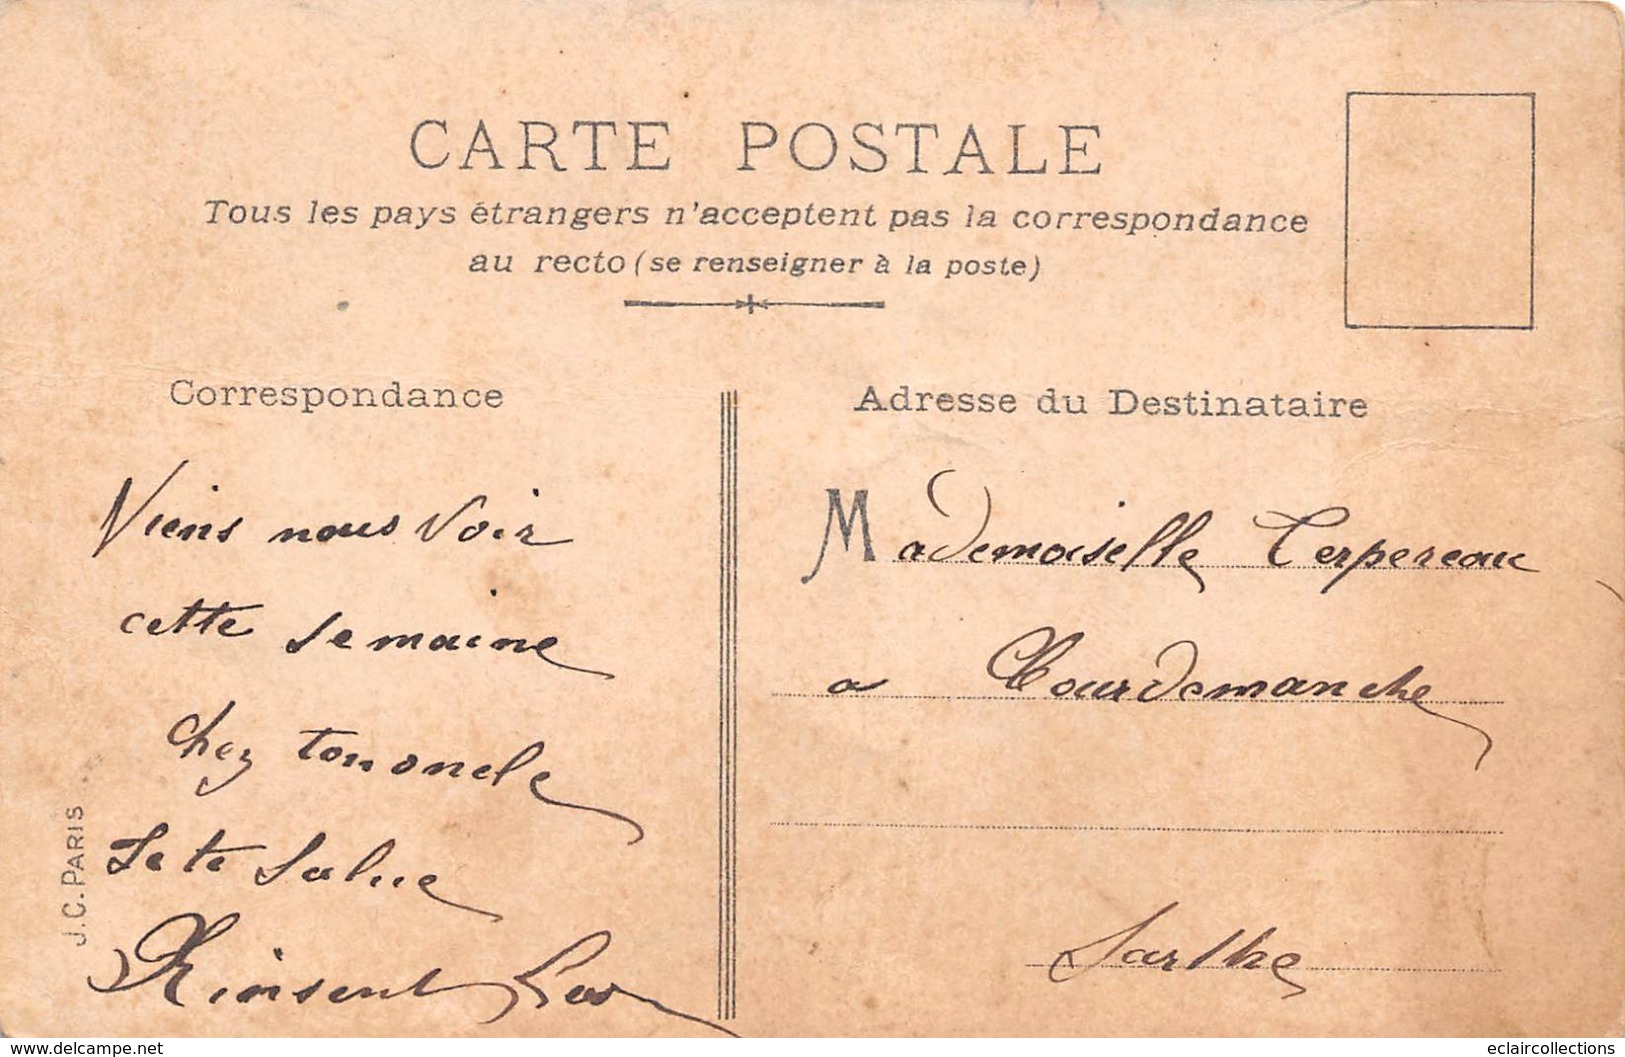 CARTE POSTALE
Tous les pays étrangers n'acceptent pas la correspondance
au recto (se renseigner à la poste)
Correspondance
Viens nous voir
cette semaine
chez ton oncle
Je te salue
J.C. PARIS
Adresse du Destinataire
Mademoiselle Terpereau
a Courdemanche
Sarthe
www.delcampe.net
eclaircollections